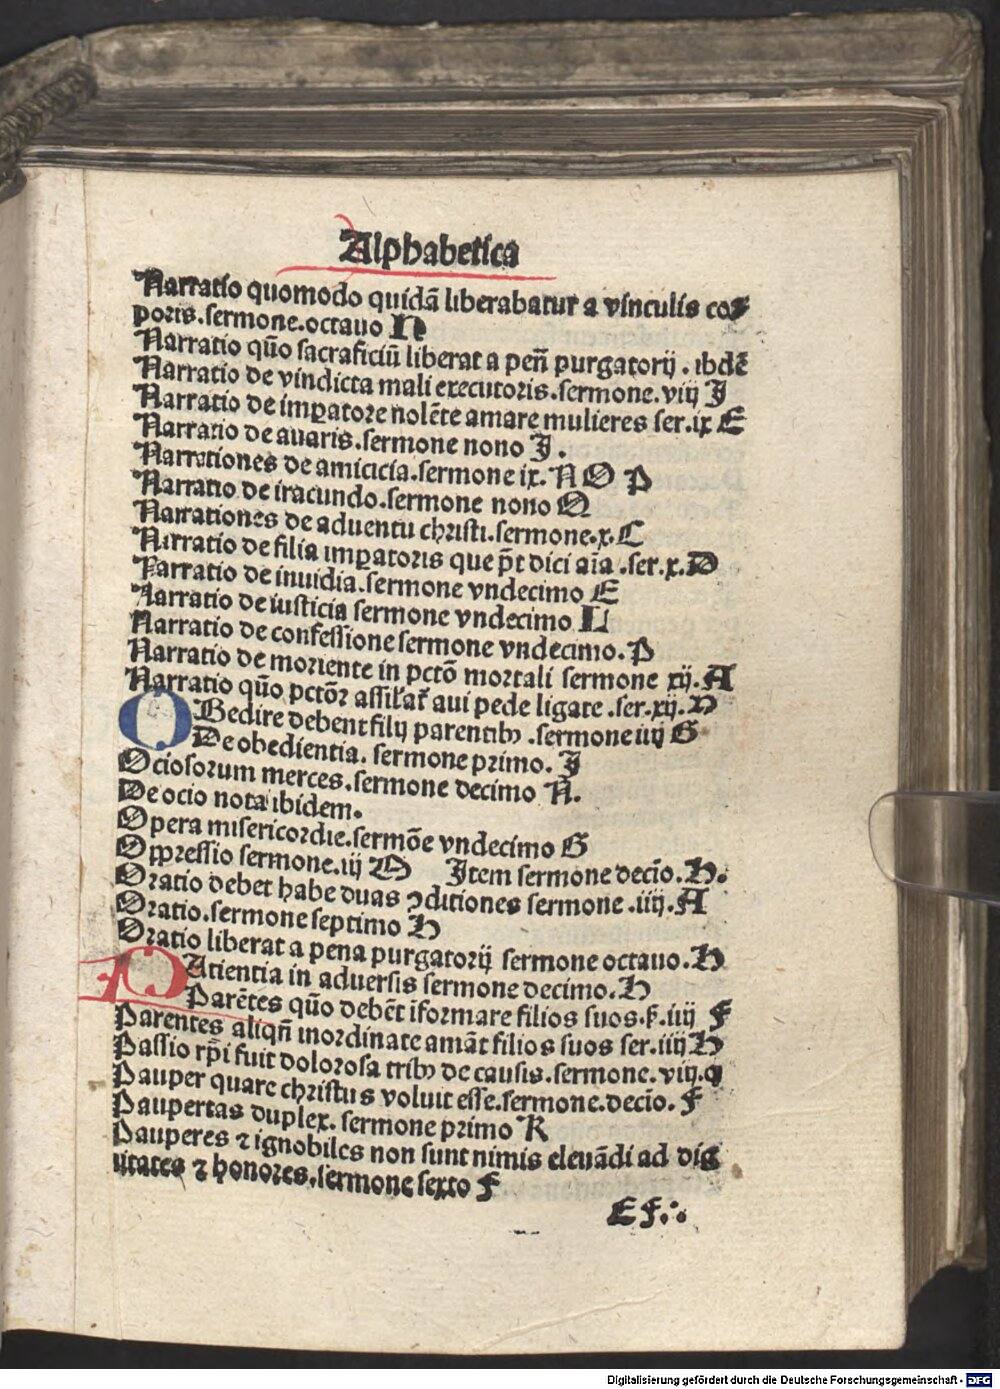 Alphabetica
Narratio quomodo quidã liberabatur a vinculis cor
poris.sermone.octauo N
Narratio quõ sacraficiũ liberat a peñ purgatorij . ibdẽ
Narratio de vindicta mali executoris.sermone.viij J
Narratio de imꝑatore nolẽte amare mulieres ser.ix E
Narratio de auaris.sermone nono J.
Narrationes de amicicia.sermone ix. N O P
Narratio de iracundo.sermone nono Q
Narrationes de aduentu christi.sermone.x. C
Narratio de filia imꝑatoris que p̃t dici aĩa .ser.x. D
Narratio de inuidia.sermone vndecimo E
Narratio de iusticia sermone vndecimo L
Narratio de confessione sermone vndecimo. P
Narratio de moriente in pctõ mortali sermone xij. A
Narratio quõ pctõꝛ assilat᷑ aui pede ligate .ser.xij. N
OBedire debent filij parentibꝰ .sermone iiij G
De obedientia. sermone primo. J
Ociosorum merces.sermone decimo N.
De ocio nota ibidem.
Opera misericordie.sermõe vndecimo G
Oppressio sermone.iij O Item sermone decĩo. H.
Oratio debet habe duas ꝯditiones sermone .iiij. A
Oratio.sermone septimo H
Oratio liberat a pena purgatorij sermone octauo. H
PAtientia in aduersis sermone decimo. H
Parẽtes quõ debẽt ĩformare filios suos.ẜ. iiij F
Parentes aliqñ inordinate amãt filios suos ser.iiij H
Passio xp̃i fuit dolorosa tribꝰ de causis.sermone. viij. q
Pauper quare christus voluit esse.sermone.decĩo. F
Paupertas duplex. sermone primo K
Pauperes ⁊ ignobiles non sunt nimis eleuãdi ad dig
nitates ⁊ honores.sermone sexto F
E F.:.
Digitalisierung gefördert durch die Deutsche Forschungsgemeinschaft - DFG